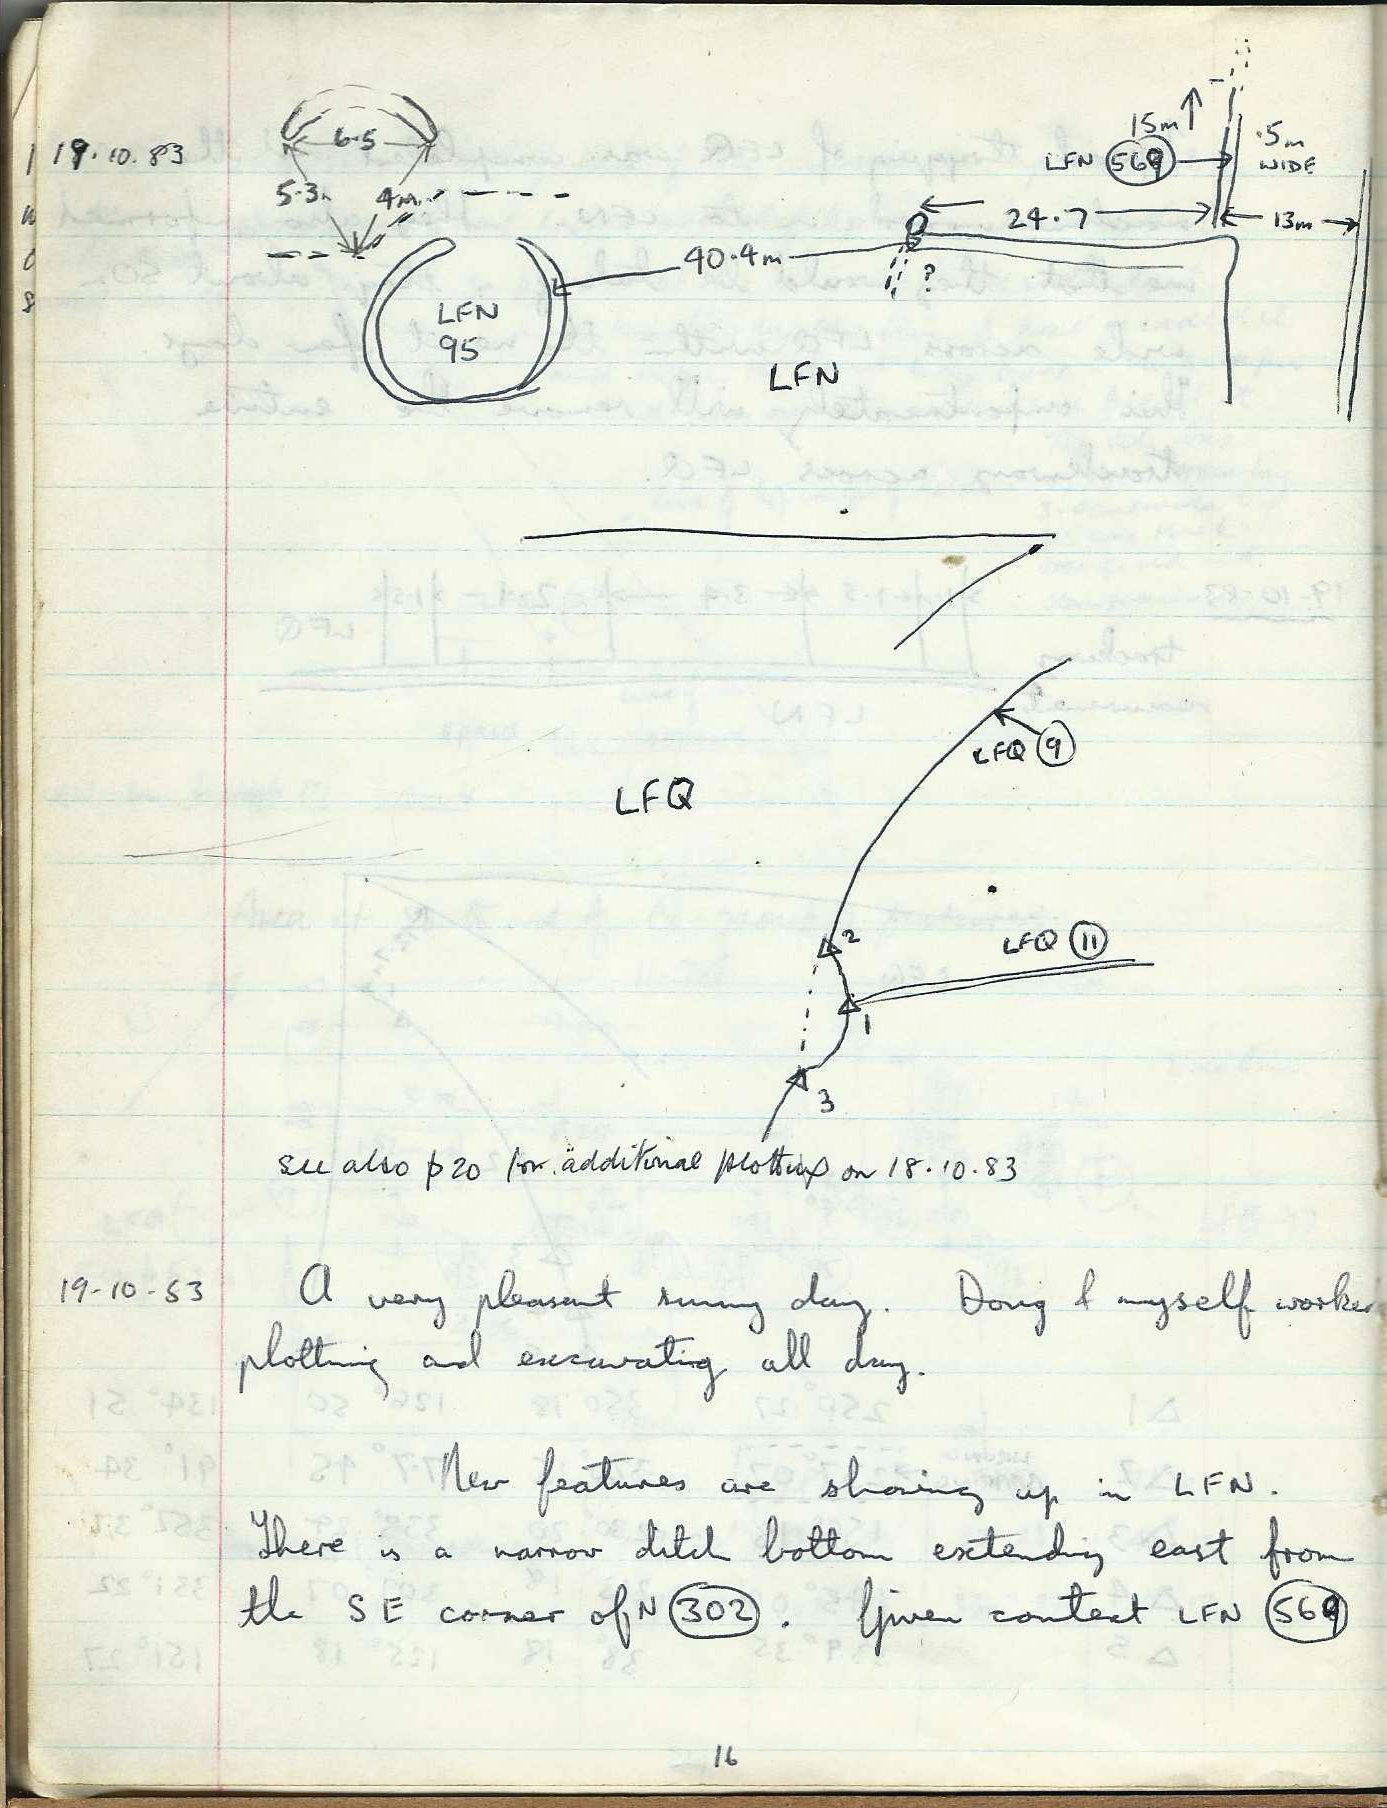 19.10.83
6.5
5.3m 4m
15m
LFN 569
.5m
WIDE
24.7
13m
40.4m
?
LFN
95
LFN
LFQ 9
LFQ
2
LFQ 11
1
3
see also p20 for additional plotting on 18.10.83
19-10-83 A very pleasant sunny day. Doug & myself worked
plotting and excavating all day.
New features are showing up in LFN.
There is a narrow ditch bottom extending east from
the SE corner of N 302. Given context LFN 569
16